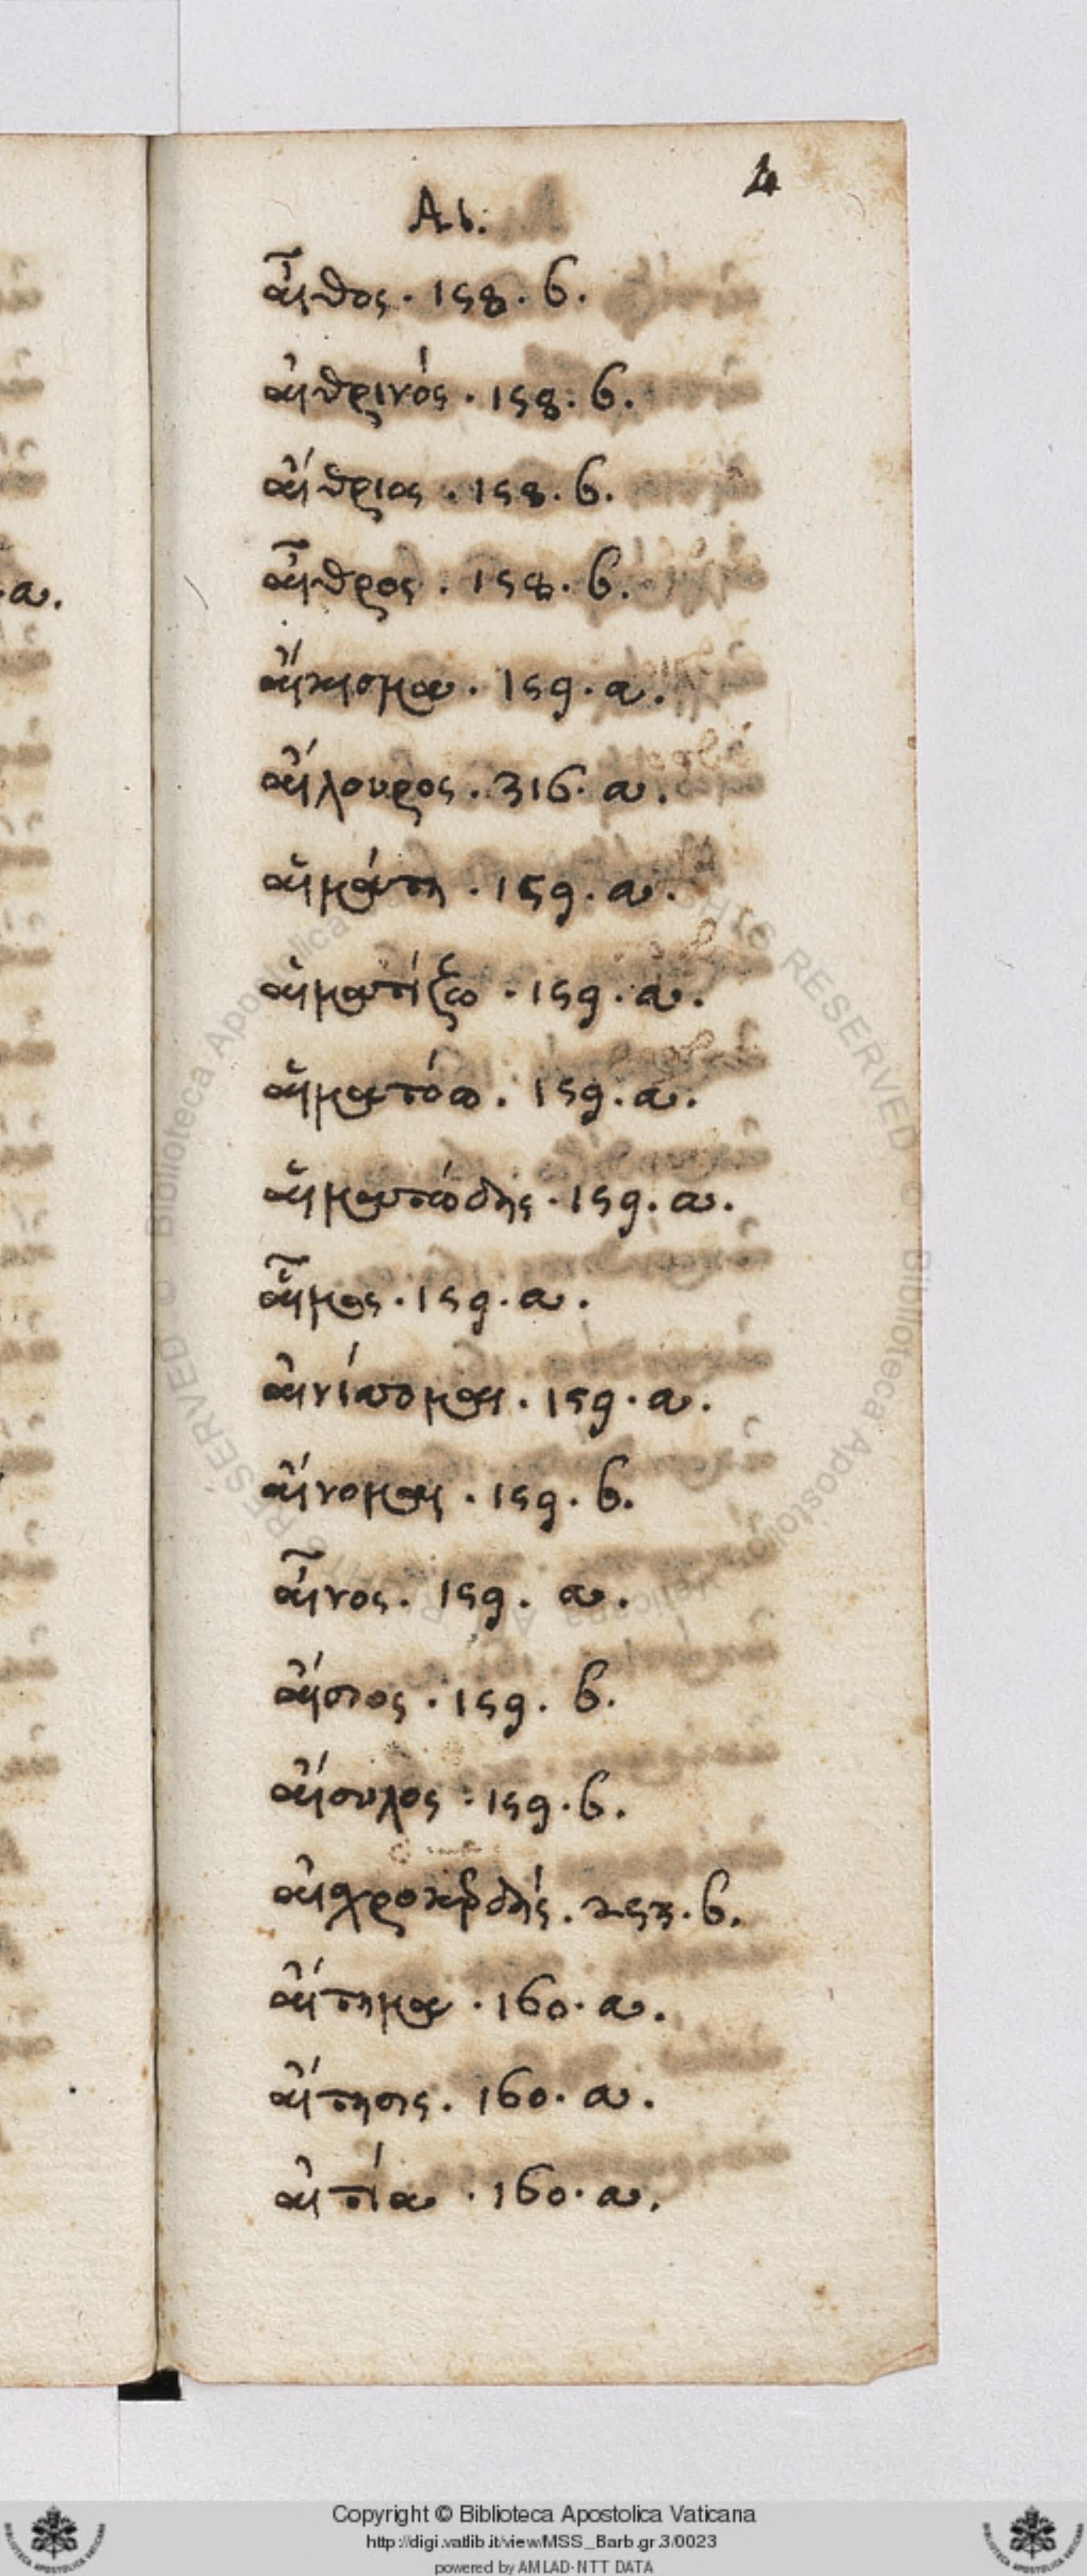 4
Αι.
αἶθος. 158. b.
αἰθρινός. 158. b.
αἴθριος. 158. b.
αἶθρος. 158. b.
αἴκισμα. 159. a.
αἴλουρος. 316. a.
a.
αἱμάτη. 159. a.
αἱματίζω. 159. a.
αἱματόω. 159. a.
αἱματώδης. 159. a.
αἷμος. 159. a.
αἰνίατομαι. 159. a.
αἴνομαι. 159. b.
αἶνος. 159. a.
αἴσιος. 159. b.
αἴσυλος. 159. b.
253. b.
αἴτημα. 160. a.
αἴτησις. 160. a.
αἰτία. 160. a.
Copyright © Biblioteca Apostolica Vaticana
http://digi.vatlib.it/view/MSS_Barb.gr.3/0023
powered by AMLAD-NTT DATA